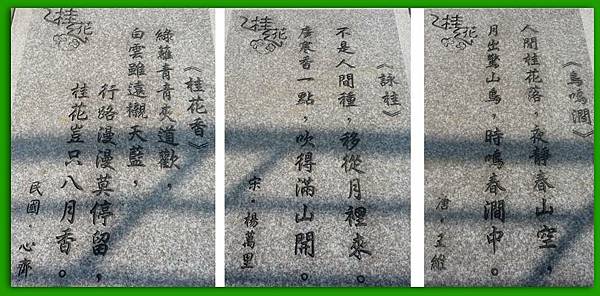 桂花
《桂花香》
綠蘿青青夾道歡，
白雲雖遠襯天藍，
行路漫漫莫停留，
桂花豈只八月香。
民國．心齋
桂花
《詠桂》
不是人間種，移從月裡來。
廣寒香一點，吹得滿山開。
宋．楊萬里
桂花
《鳥鳴澗》
人間桂花落，夜靜春山空，
月出驚山鳥，時鳴春澗中。
唐．王維